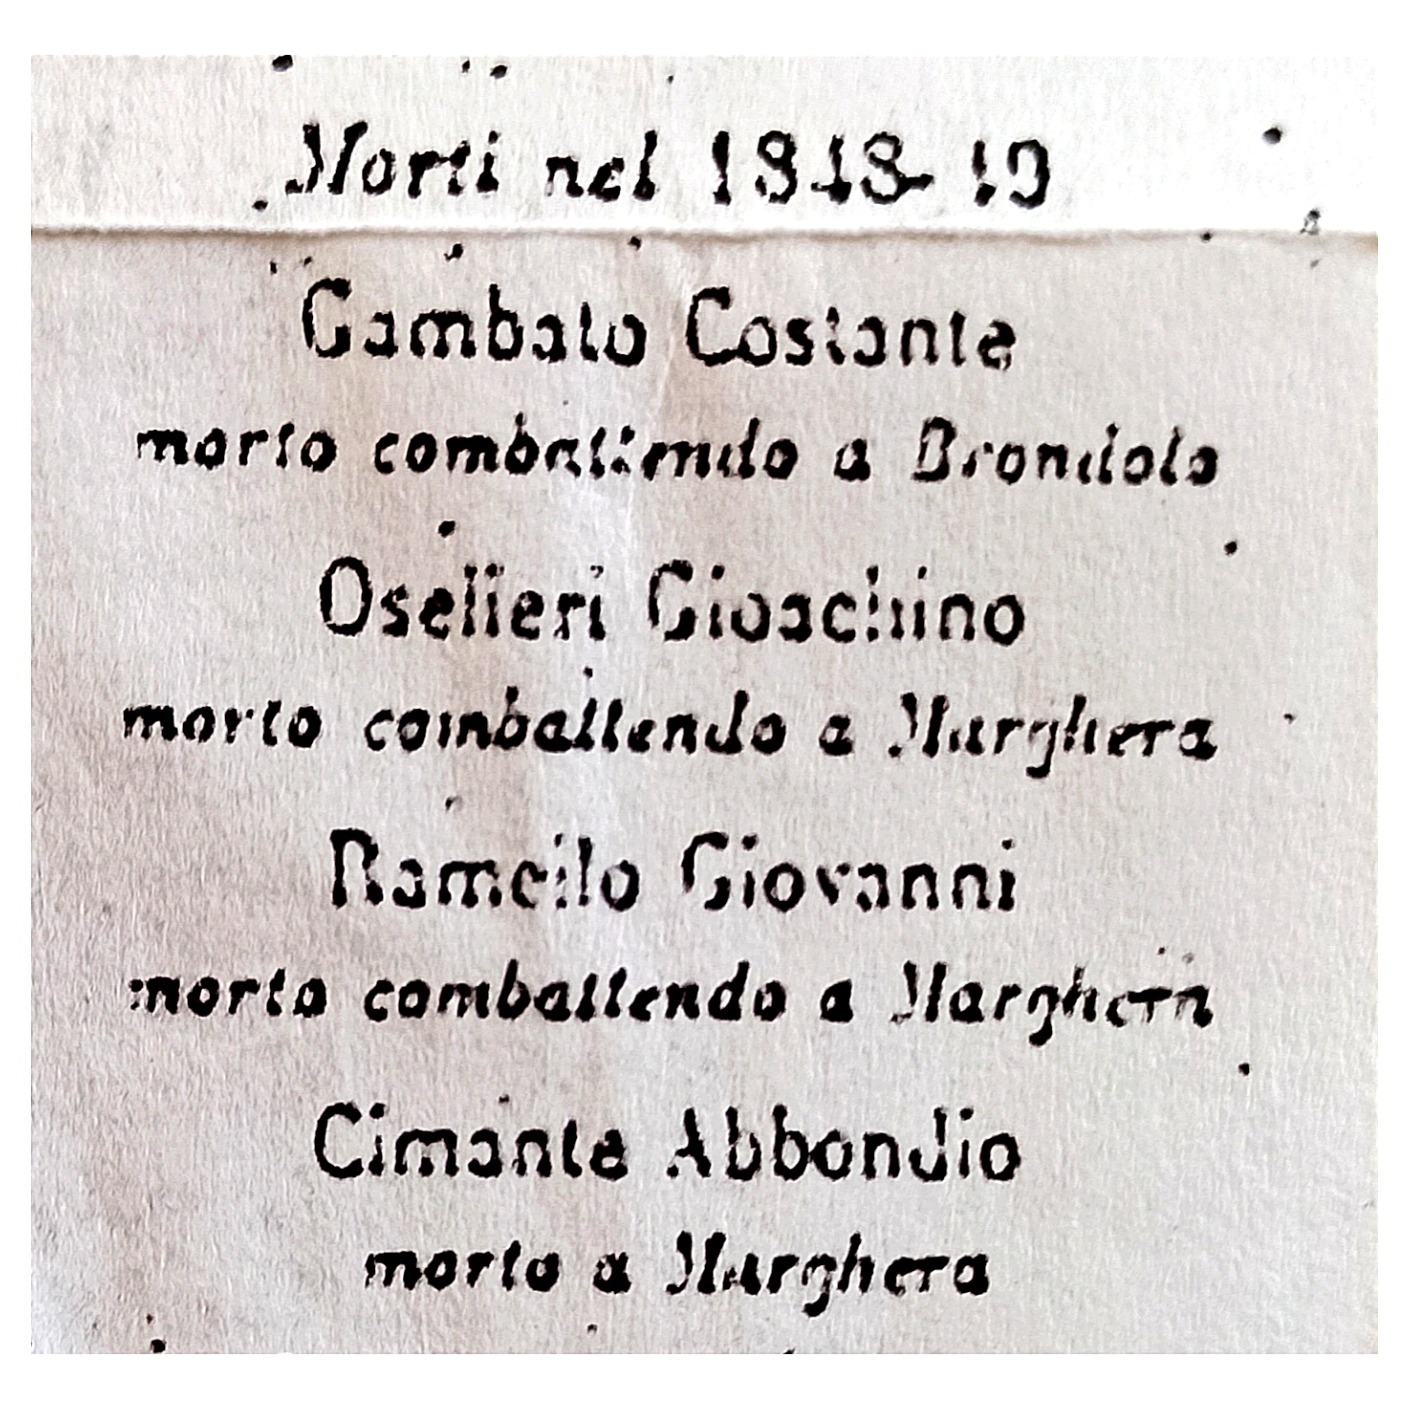 Morti nel 1848-49
Gambato Costante
morto combattendo a Brondolo
Oselieri Gioachino
morto combattendo a Marghera
Rameilo Giovanni
morto combattendo a Marghera
Cimante Abbondio
morto a Marghera